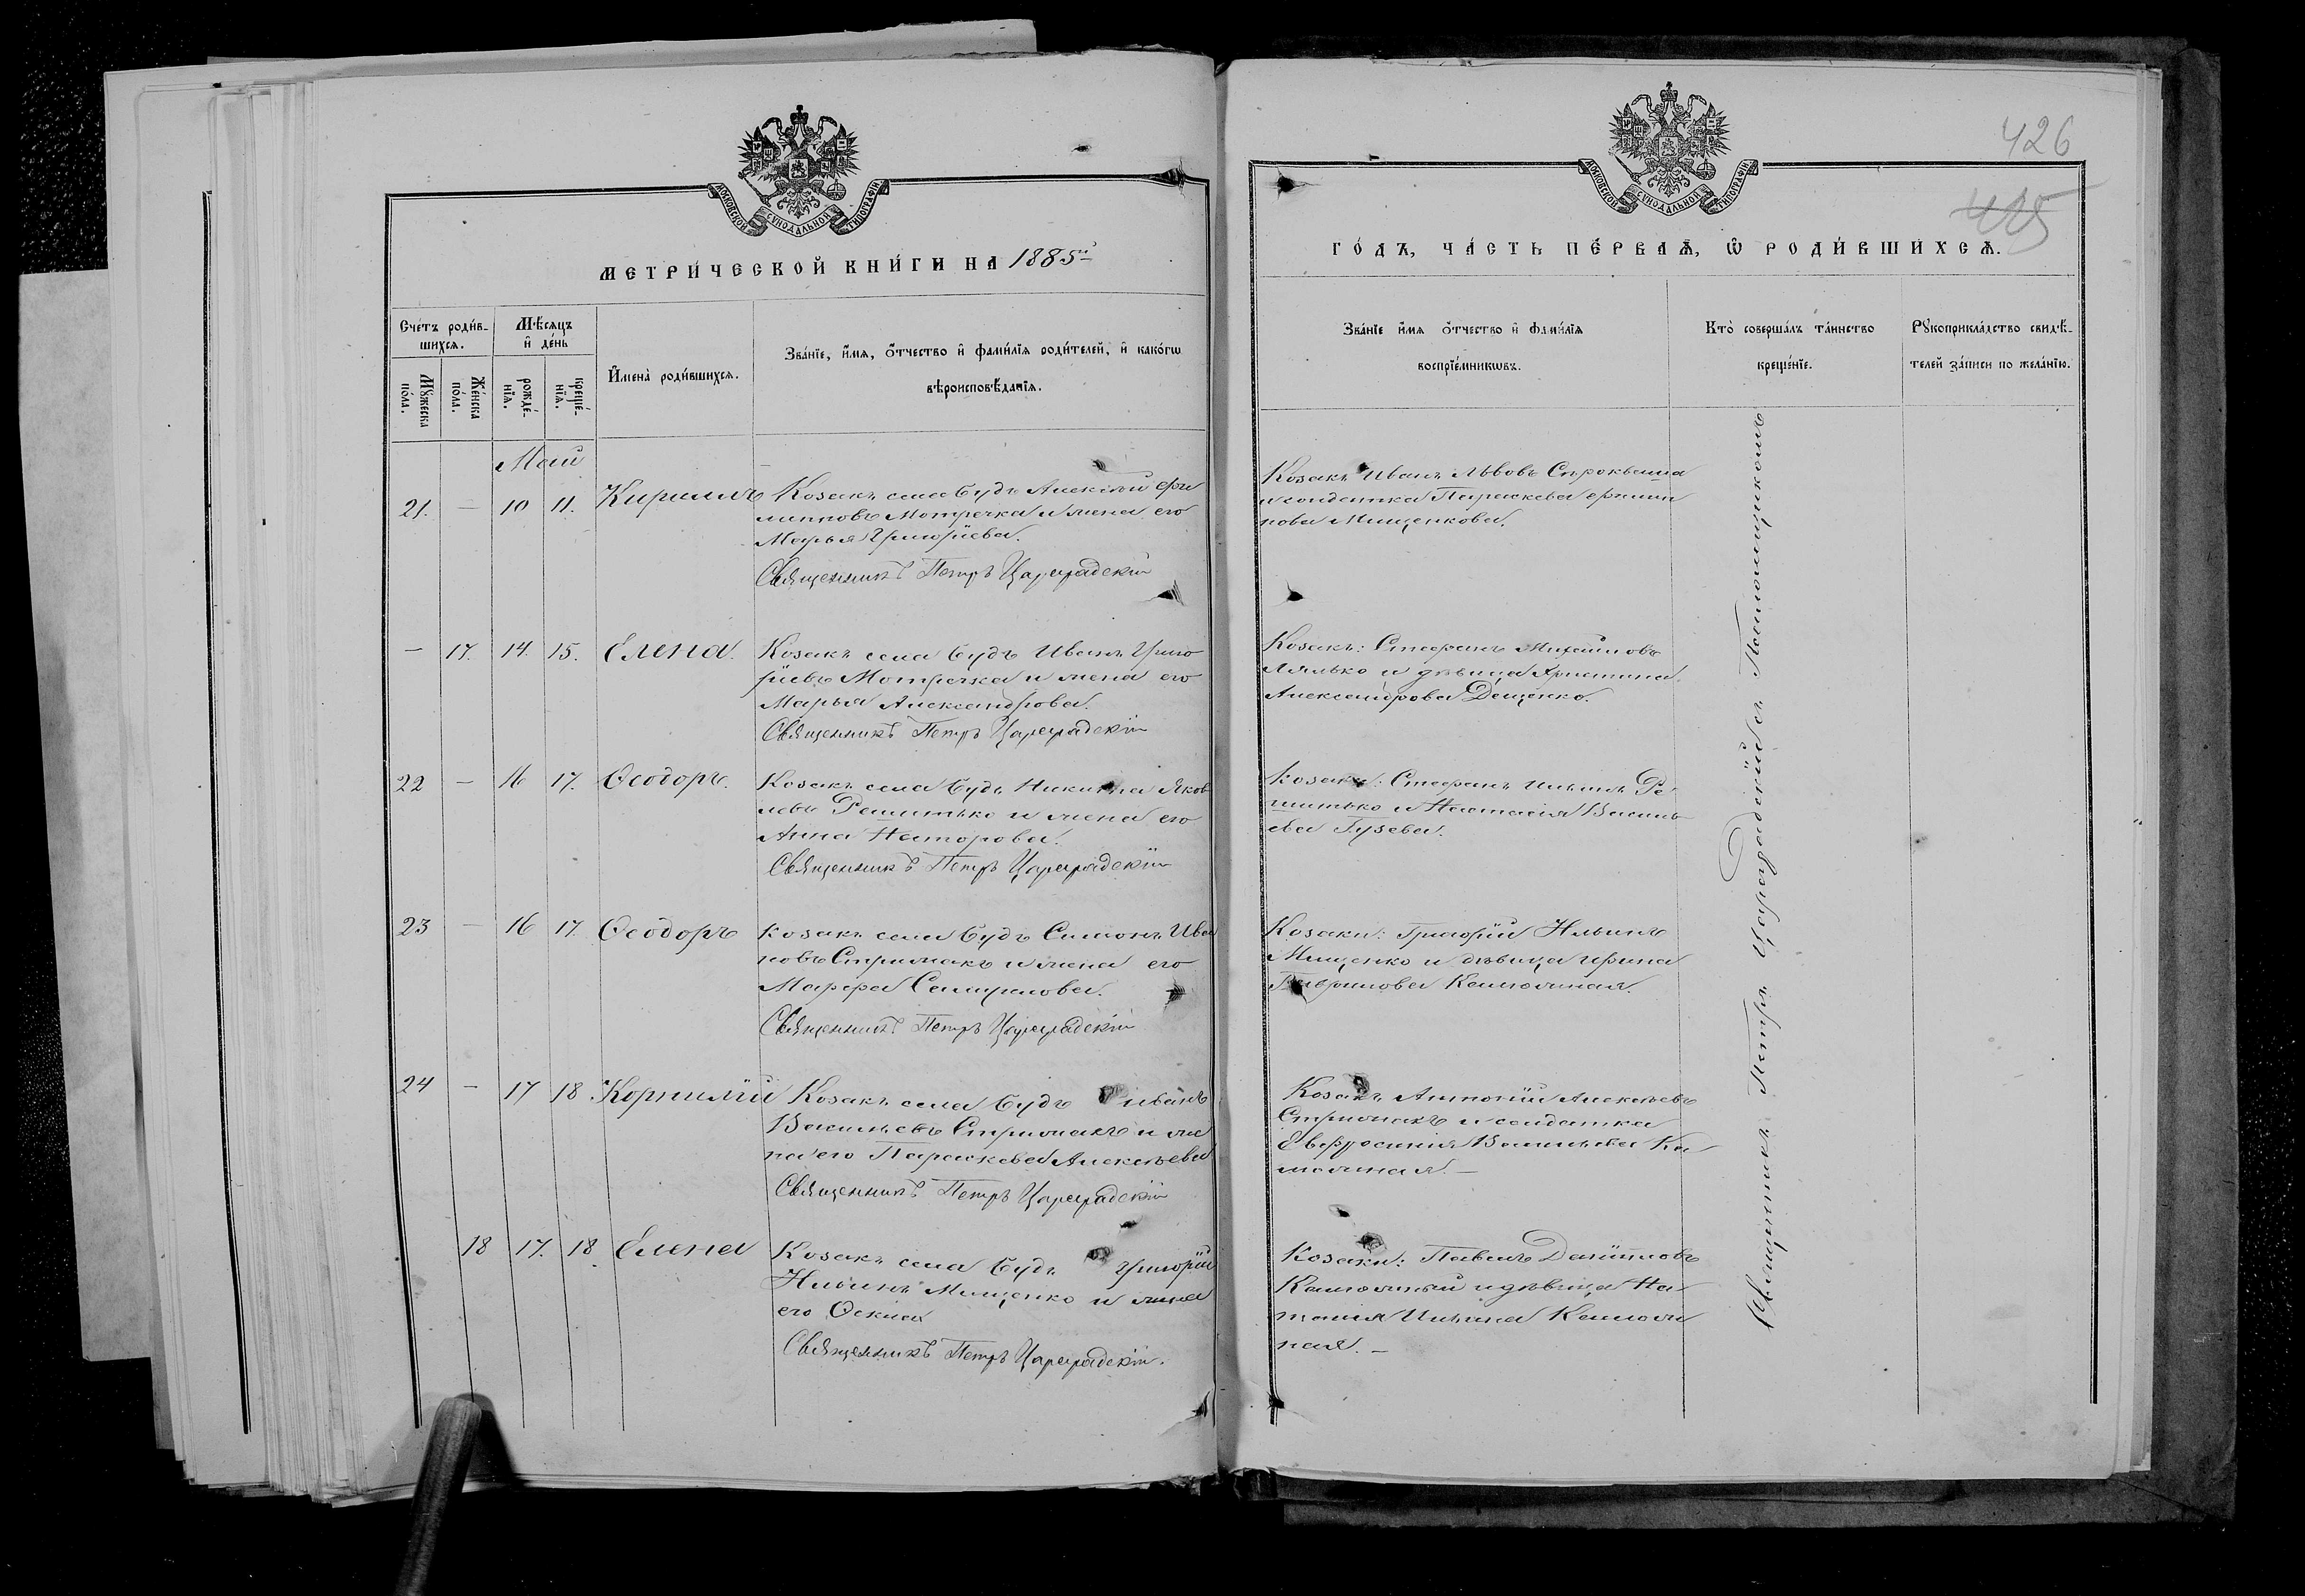 МОСКОВСКОЙ СУНОДАЛЬНОЙ ТИПОГРАФІИ
МЕТРИ́ЧЕСКОЙ КНИ́ГИ НА 1885й
Сче́тъ роди́в-
шихсѧ.
Мꙋ́жеска
по́ла.
Же́нска
по́ла.
Мѣ́сѧцъ
и҆ де́нь
рожде́-
нїѧ.
креще́-
нїѧ.
И҆мена̀ роди́вшихсѧ.
Зва́нїе, и҆́мѧ, ѻ҆́тчество и҆ фамилїѧ роди́телей, и҆ како́гѡ
вѣроисповѣ́данїѧ.
Май
21. — 10 11. Кириллъ
Козакъ села Будъ Алексѣй Фи
липповъ Мотречка и жена его
Марья Григорїева.
Священникъ Петръ Цареградскій
— 17. 14. 15. Елена.
Козакъ села Будъ Иванъ Григо
рїевъ Мотречка и жена его
Марья Александрова.
Священникъ Петръ Цареградскій
22 — 16 17. Ѳеодоръ.
Козакъ села Будъ Никита Яков
левъ Решитько и жена его
Анна
Священникъ Петръ Цареградскій
23 — 16 17. Ѳеодоръ
Козакъ села Будъ Симонъ Ива
новъ Стрижакъ и жена его
Марфа
Священникъ Петръ Цареградскій
24 — 17 18 Корнилїй
Козакъ села Будъ Иванъ
Васильевъ Стрижакъ и же
на его Параскева Алексѣева
Священникъ Петръ Цареградскій
18 17. 18 Елена
Козакъ села Будъ Григорїй
Ильинъ Мищенко и жена
его
Священникъ Петръ Цареградскій.
426
415
МОСКОВСКОЙ СУНОДАЛЬНОЙ ТИПОГРАФІИ
ГО́ДЪ, ЧА́СТЬ ПЕ́РВАѦ, Ѽ РОДИ́ВШИХСѦ.
Зва́нїе и҆́мѧ ѻ҆́тчество и҆ фамилїѧ
воспрїе́мникѡвъ.
Кто̀ соверша́лъ та́инство
креще́нїе.
Рꙋкоприкла́дство свидѣ́-
телей за́писи по жела́нїю.
Козакъ Иванъ Львовъ
и солдатка Параскева Филип
пова Мищенкова.
Козакъ: Стефанъ Михайловъ
Лялько и дѣвица Христина
Александрова Дещенко.
Козаки: Стефанъ Ильинъ Ре
шитько и Настасїя Василь
ева Гузева.
Козаки: Григорїй Ильинъ
Мищенко и дѣвица Ирина
Гаврилова
Козакъ Антонїй Алексѣевъ
Стрижакъ и солдатка
Евфросинїя Васильева
Козаки: Павелъ Данїиловъ
и дѣвица На
талїя Ильина
ная. —
Священникъ Петръ Цареградскїй съ Псаломщикомъ